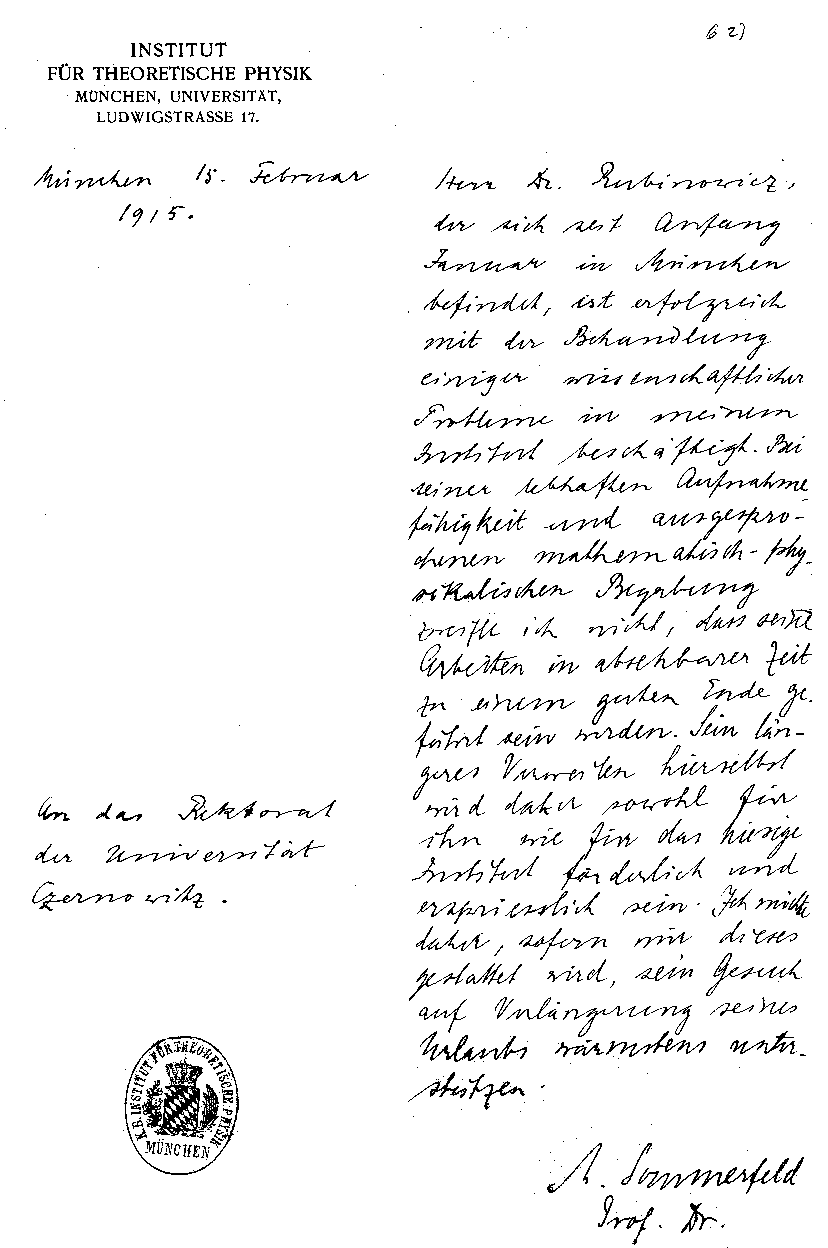 62)
INSTITUT
FÜR THEORETISCHE PHYSIK
MÜNCHEN, UNIVERSITÄT,
LUDWIGSTRASSE 17.
München 15. Februar
1915.
Herr Dr. Rubinowicz,
der sich seit Anfang
Januar in München
befindet, ist erfolgreich
mit der Behandlung
einiger wissenschaftlicher
Probleme in meinem
Institut beschäftigt. Bei
seiner lebhaften Aufnahme
fähigkeit und ausgespro-
chenen mathematisch-phy-
sikalischen Begabung
zweifle ich nicht, dass seine
Arbeiten in absehbarer Zeit
zu einem guten Ende ge-
führt sein werden. Sein län-
geres Verweilen hierselbst
wird daher sowohl für
ihn wie für das hiesige
Institut förderlich und
erspriesslich sein. Ich möchte
daher, sofern mir dieses
gestattet wird, sein Gesuch
auf Verlängerung seines
Urlaubs wärmstens unter-
stützen.
An das Rektorat
der Universität
Czernowitz.
K.B. INSTITUT FÜR THEORETISCHE PHYSIK
MÜNCHEN
A. Sommerfeld
Prof. Dr.